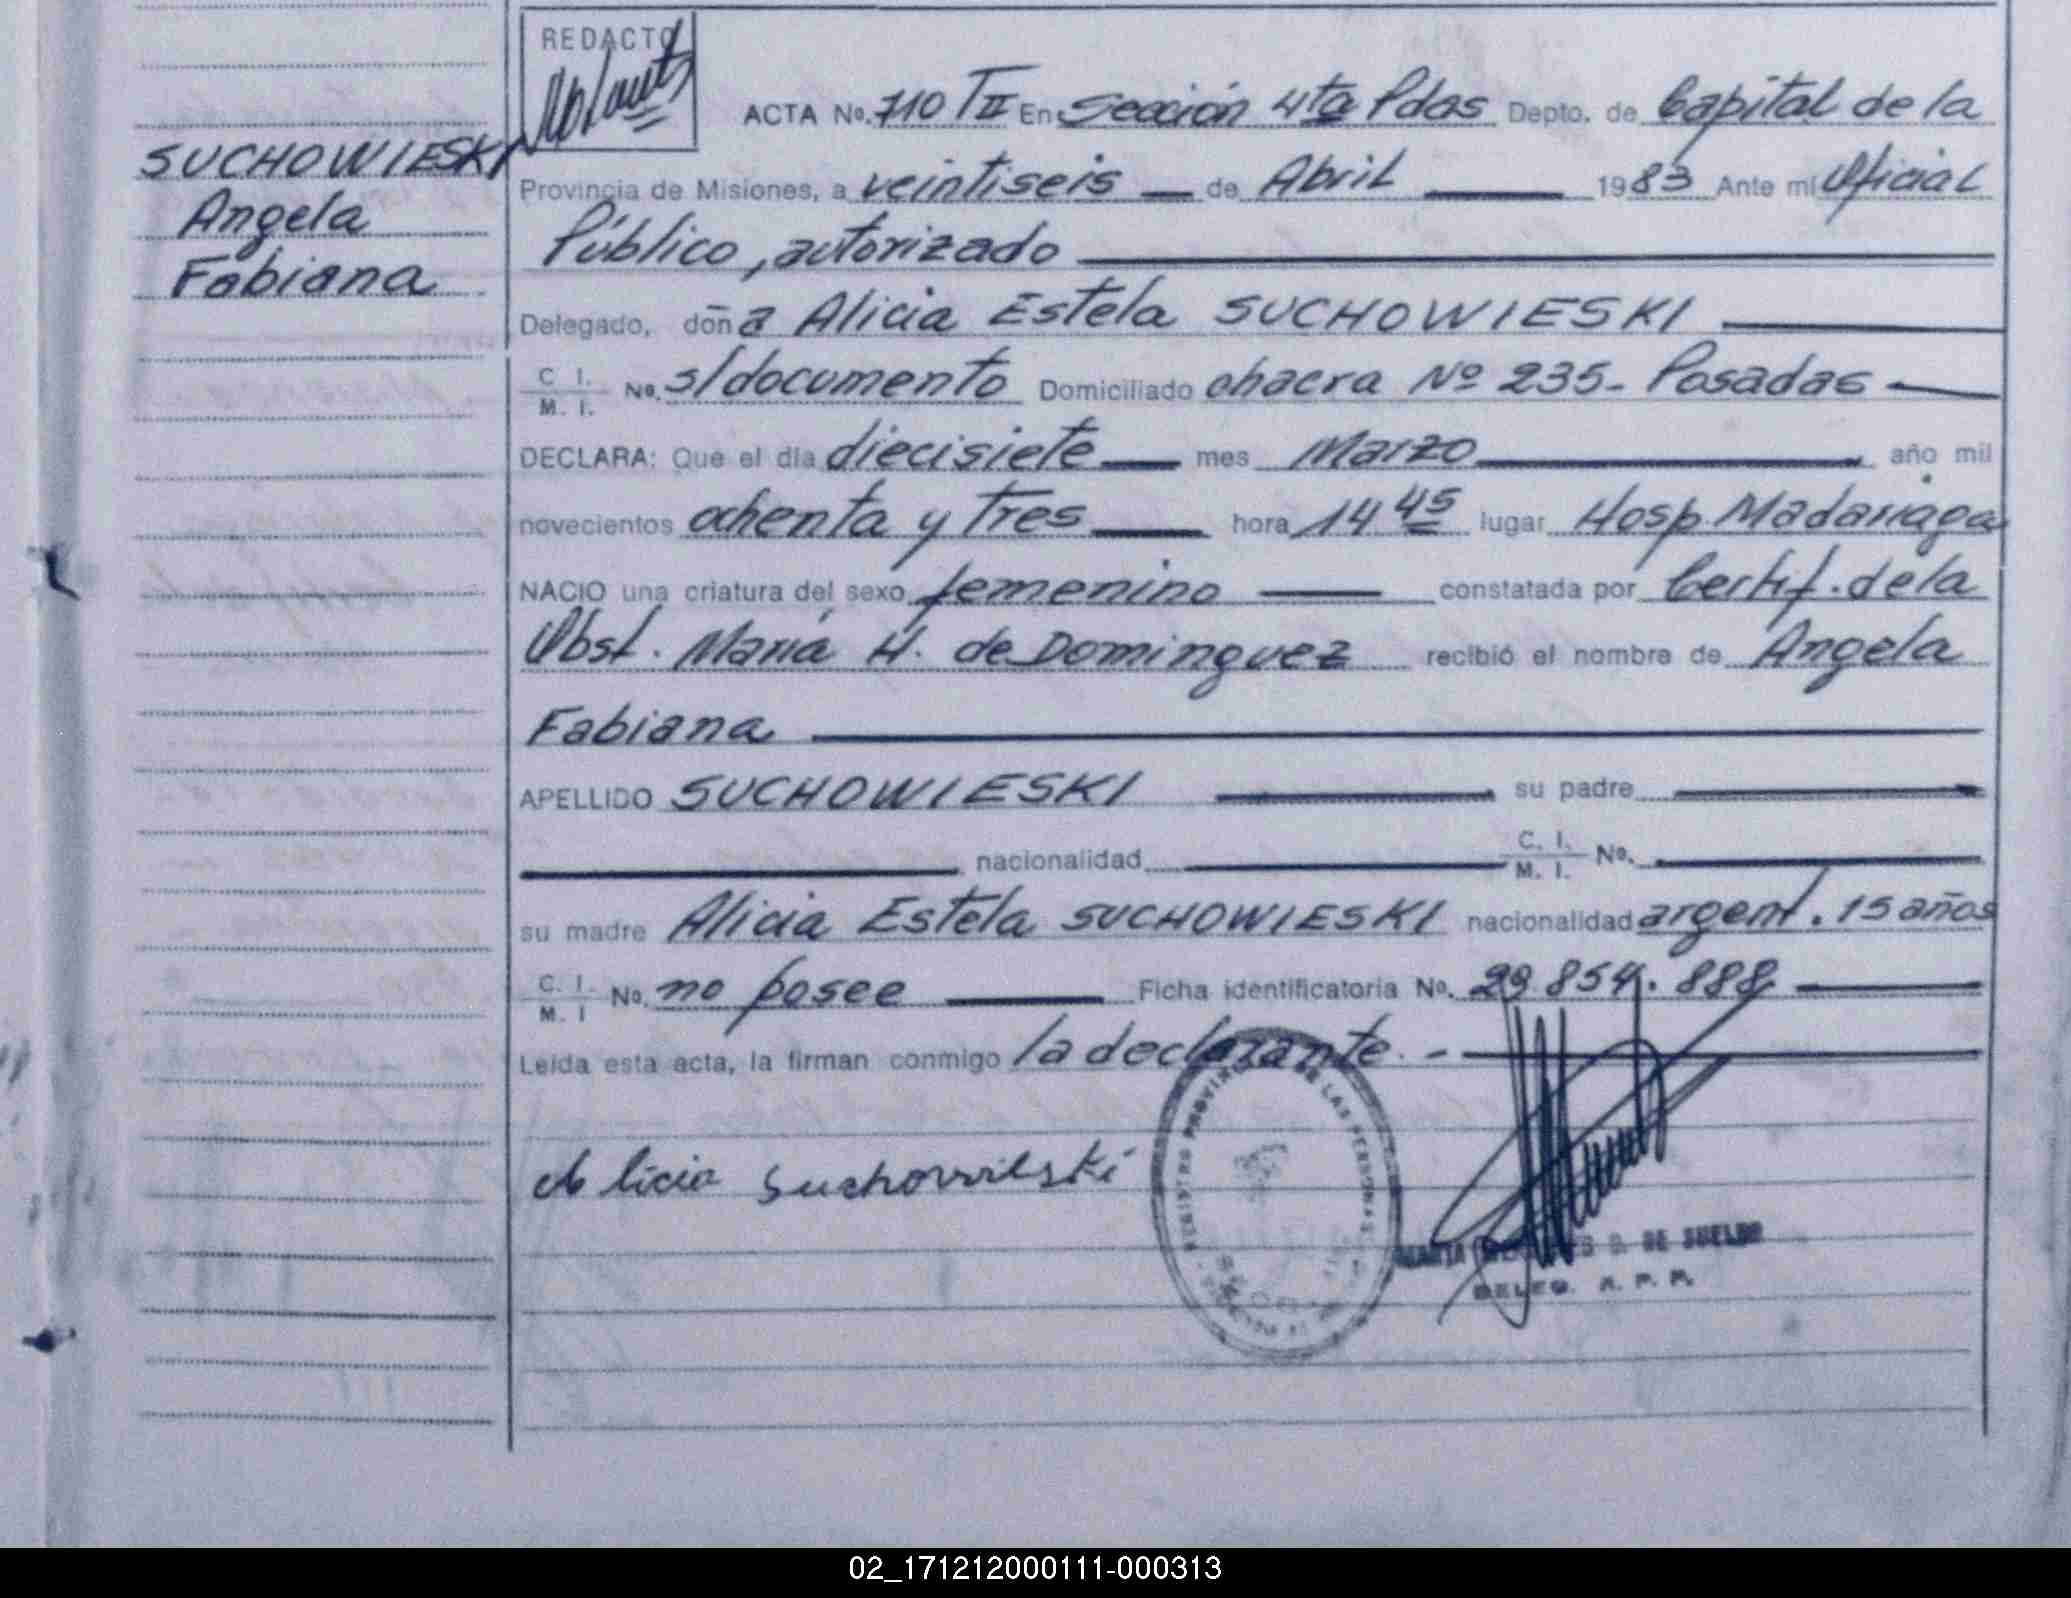 REDACTO
ACTA No. 710 TII En Sección 4ta Pdas Depto. de Capital de la
SUCHOWIESKI
Angela
Fabiana
Provincia de Misiones, a veintiseis de Abril 1983 Ante mi Oficial
Público, autorizado
Delegado, doña Alicia Estela SUCHOWIESKI
C. I. M. I. No. s/documento Domiciliado chacra Nº 235- Posadas
DECLARA: Que el día diecisiete mes Marzo año mil
novecientos ochenta y tres hora 14 45 lugar Hosp. Madariaga
NACIO una criatura del sexo femenino constatada por Certif. de la
Obst. María H. de Dominguez recibió el nombre de Angela
Fabiana
APELLIDO SUCHOWIESKI su padre
nacionalidad C. I. M. I. No.
su madre Alicia Estela SUCHOWIESKI nacionalidad argent. 15 años
C. I. M. I No. no posee Ficha identificatoria No. 29.854.888
Leída esta acta, la firman conmigo la declarante.-
Alicia Suchowieski
REGISTRO PROVINCIAL DE LAS PERSONAS
DE SUELDO
DELEG. R. P. P.
02_171212000111-000313